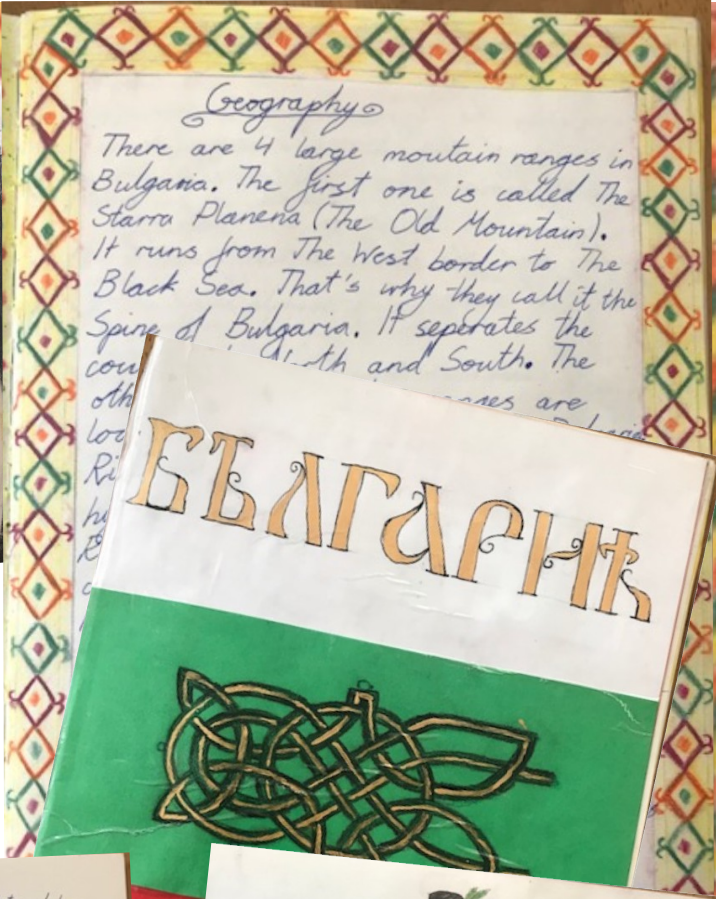 Geography
There are 4 large moutain ranges in
Bulgaria. The first one is called The
Starra Planena (The Old Mountain).
It runs from The West border to The
Black Sea. That's why they call it the
Spine of Bulgaria. It seperates the
and South. The
are
БЪЛГАРИѢ